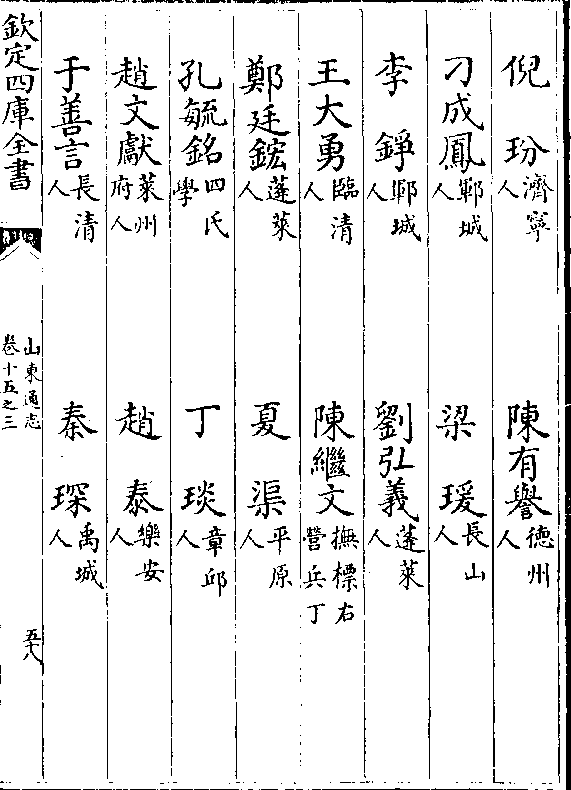 倪玢濟寧人　陳有譽德州人
刁成鳳鄆城人　梁瑗長山人
李錚鄆城人　劉弘義蓬萊人
王大勇臨清人　陳繼文撫標右營兵丁
鄭廷鋐蓬萊人　夏渠平原人
孔毓銘四氏學　丁琰章邱人
趙文獻萊州府人　趙泰樂安人
于善言長清人　秦琛禹城人
欽定四庫全書
山東通志
卷十五之三
五十八